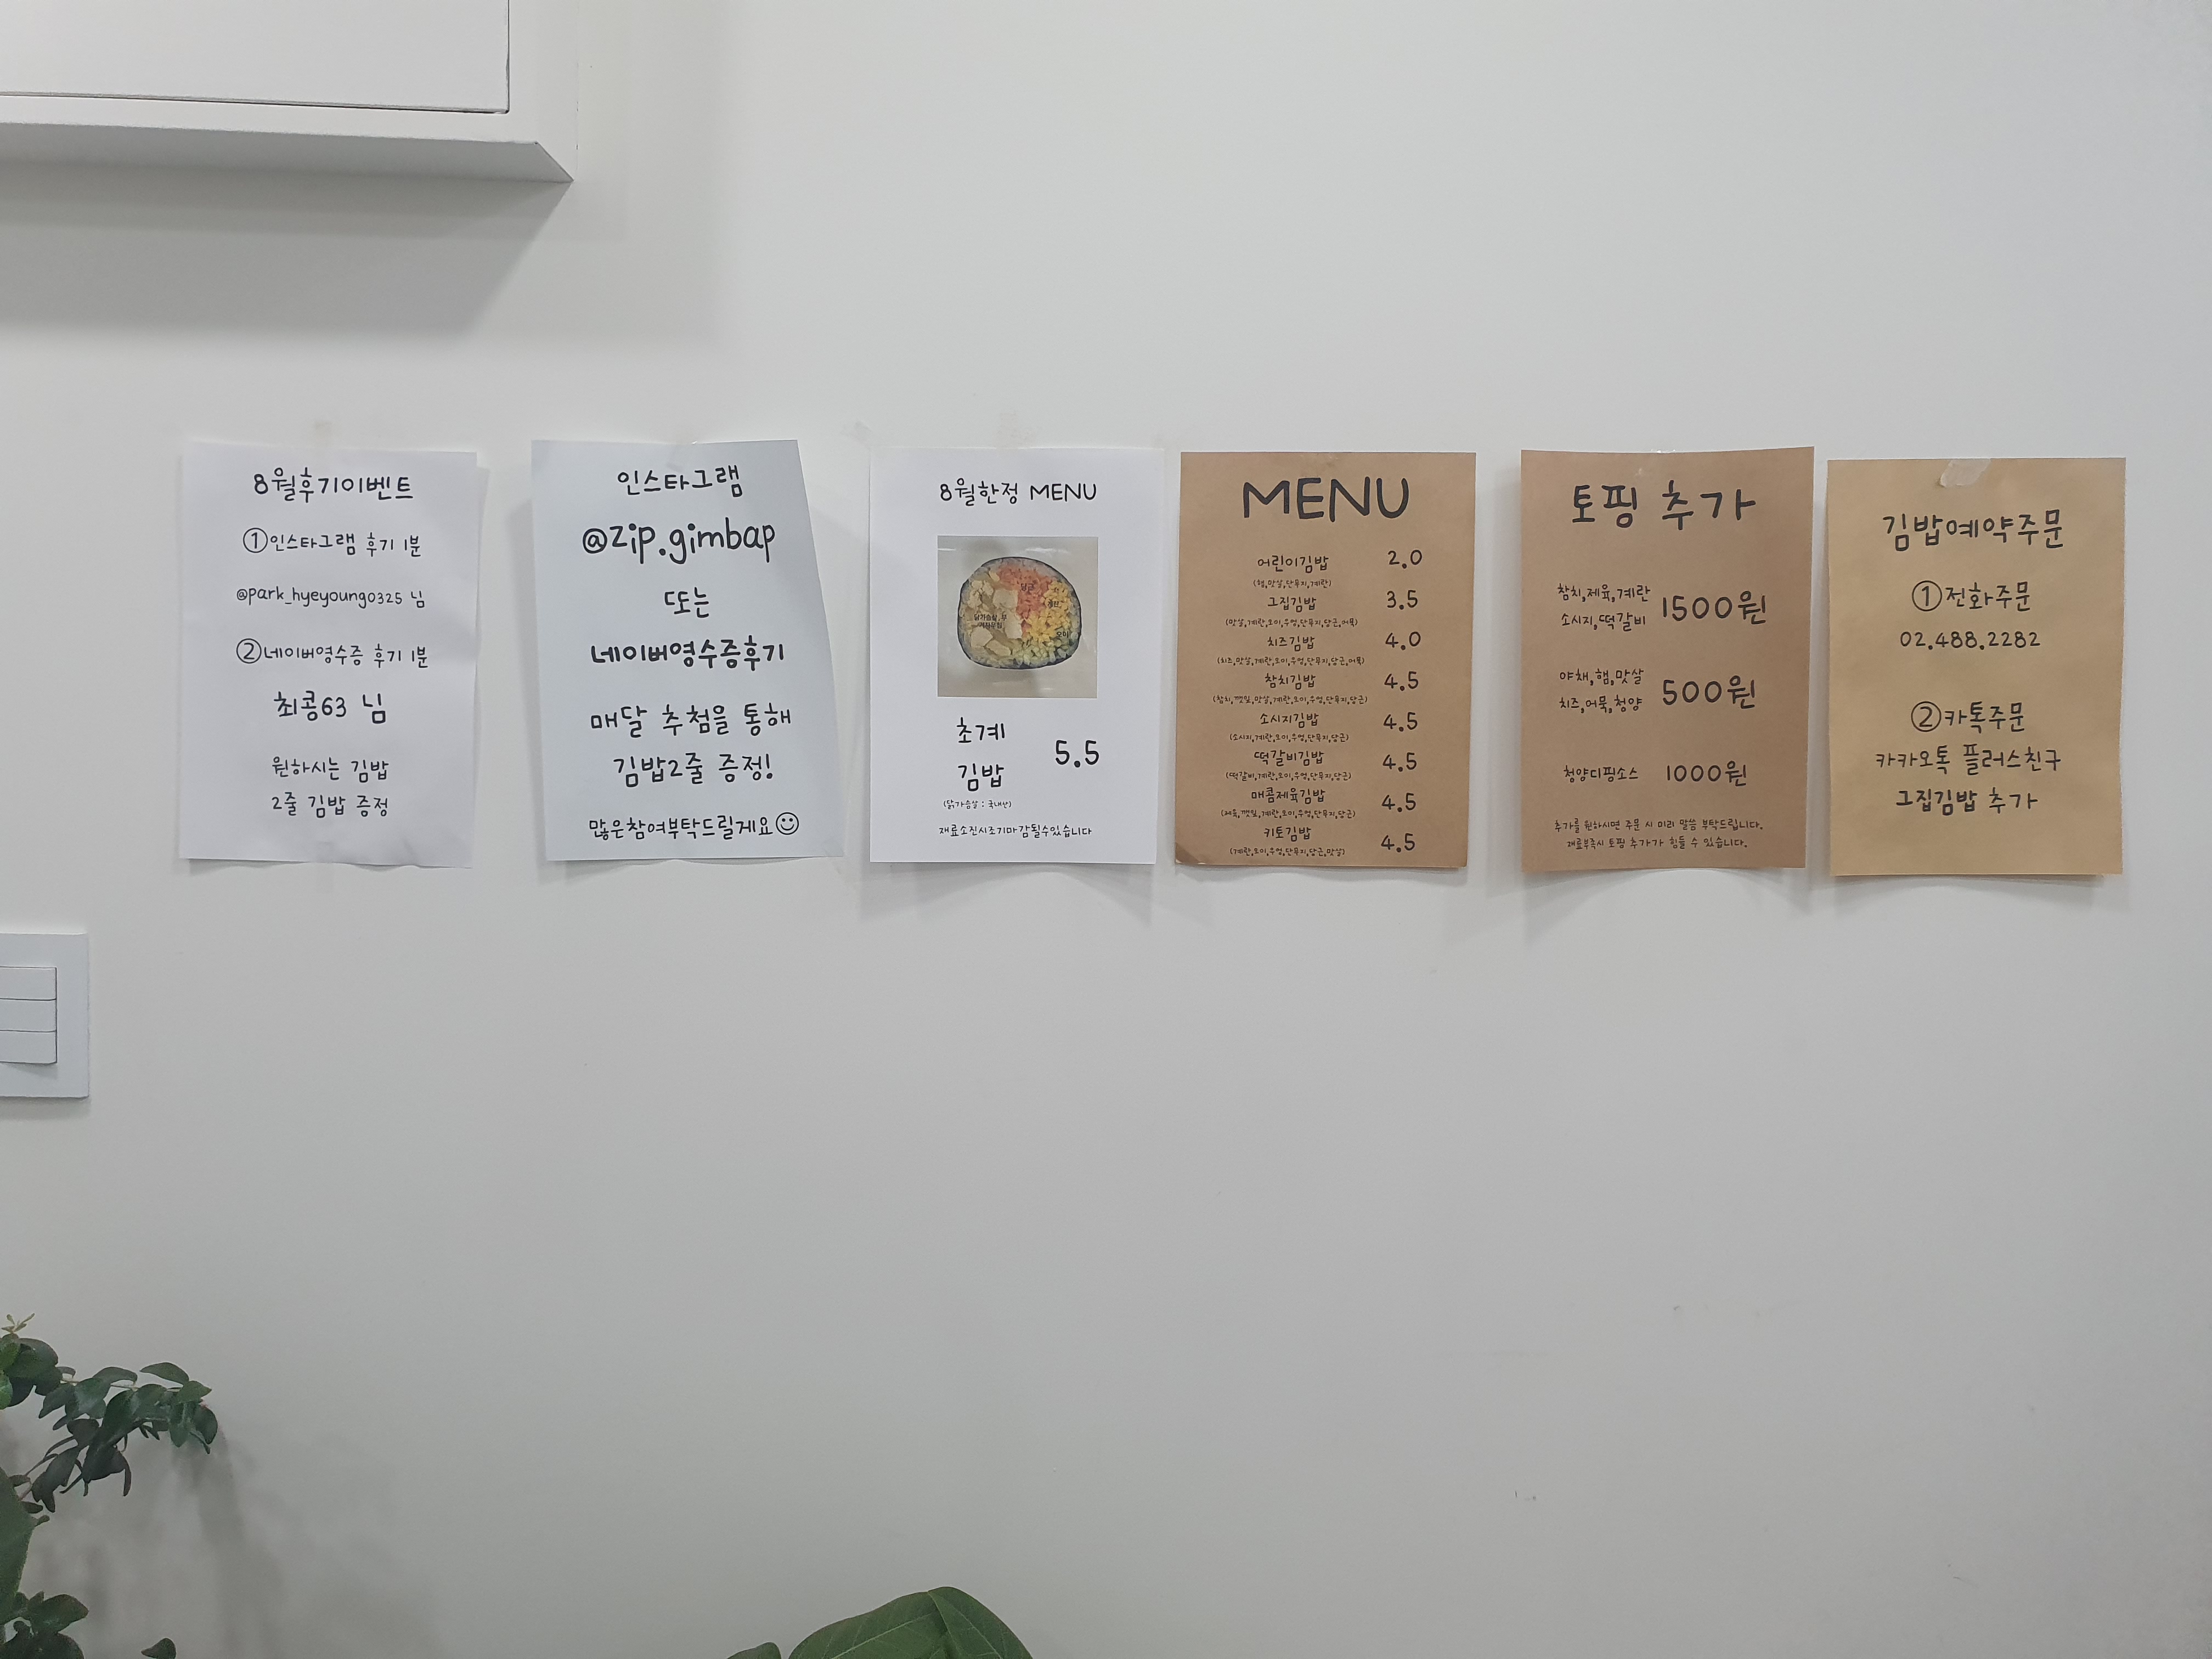 8월후기이벤트
①인스타그램 후기 1분
@park_hyeyoung0325 님
②네이버영수증 후기 1분
최콩63 님
원하시는 김밥
2줄 김밥 증정
인스타그램
@zip.gimbap
또는
네이버영수증후기
매달 추첨을 통해
김밥2줄 증정!
많은참여부탁드릴게요☺
8월한정 MENU
당근
오이
초계
김밥
5.5
(닭가슴살 : 국내산)
재료소진시조기마감될수있습니다
MENU
어린이김밥 2.0
(햄,맛살,단무지,계란)
그집김밥 3.5
(맛살,계란,오이,우엉,단무지,당근,어묵)
치즈김밥 4.0
(치즈,맛살,계란,오이,우엉,단무지,당근,어묵)
참치김밥 4.5
(참치,깻잎,맛살,계란,오이,우엉,단무지,당근)
소시지김밥 4.5
(소시지,계란,오이,우엉,단무지,당근)
떡갈비김밥 4.5
(떡갈비,계란,오이,우엉,단무지,당근)
매콤제육김밥 4.5
(제육,깻잎,계란,오이,우엉,단무지,당근)
키토김밥 4.5
(계란,오이,우엉,단무지,당근,맛살)
토핑 추가
참치,제육,계란
소시지,떡갈비 1500원
야채,햄,맛살
치즈,어묵,청양 500원
청양디핑소스 1000원
추가를 원하시면 주문 시 미리 말씀 부탁드립니다.
재료부족시 토핑 추가가 힘들 수 있습니다.
김밥예약주문
①전화주문
02.488.2282
②카톡주문
카카오톡 플러스친구
그집김밥 추가